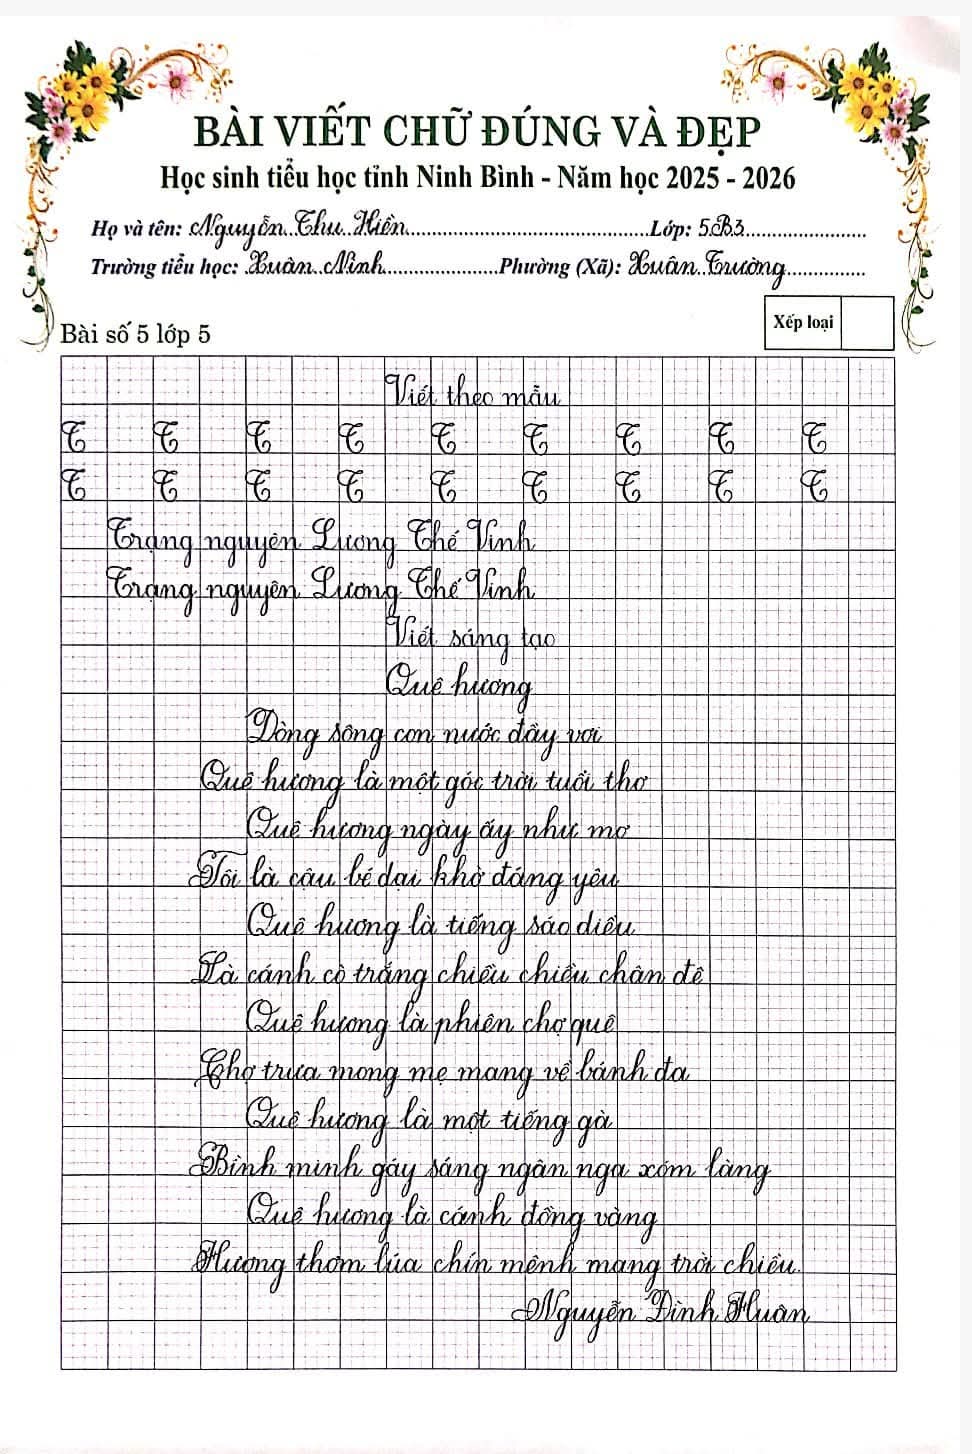 BÀI VIẾT CHỮ ĐÚNG VÀ ĐẸP
Học sinh tiểu học tỉnh Ninh Bình - Năm học 2025 - 2026
Họ và tên: Nguyễn Thu Hiền Lớp: 5B3
Trường tiểu học: Xuân Ninh Phường (Xã): Xuân Trường
Xếp loại
Bài số 5 lớp 5
Viết theo mẫu
T T T T T T T T T
T T T T T T T T T
Trạng nguyên Lương Thế Vinh
Trạng nguyên Lương Thế Vinh
Viết sáng tạo
Quê hương
Dòng sông con nước đầy vơi
Quê hương là một góc trời tuổi thơ
Quê hương ngày ấy như mơ
Tôi là cậu bé dại khờ đáng yêu
Quê hương là tiếng sáo diều
Là cánh cò trắng chiều chiều chân đê
Quê hương là phiên chợ quê
Chợ trưa mong mẹ mang về bánh đa
Quê hương là một tiếng gà
Bình minh gáy sáng ngân nga xóm làng
Quê hương là cánh đồng vàng
Hương thơm lúa chín mênh mang trời chiều.
Nguyễn Đình Huân